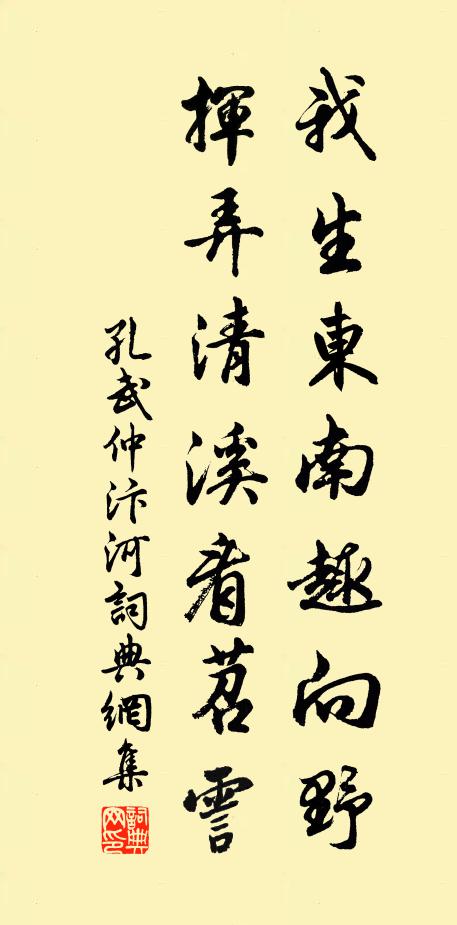 我生東南趣向野
揮弄清溪看苕霅
孔武仲汴河詞典網集
詞典網印